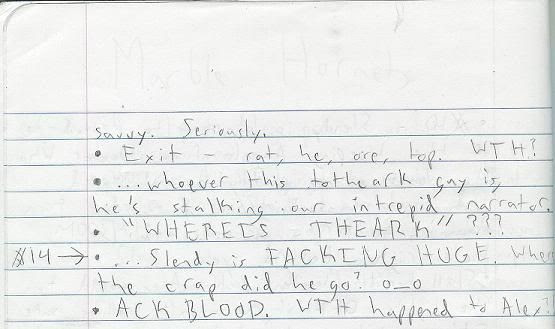 savvy. Seriously.
• Exit - rat, he, ore, top. WTH?
• ...whoever this totheark guy is,
he's stalking our intrepid narrator.
• "WHEREIS THEARK" ???
#14 → • ...Slendy is FACKING HUGE. Where
the crap did he go? o_o
• ACK BLOOD. WTH happened to Alex?!